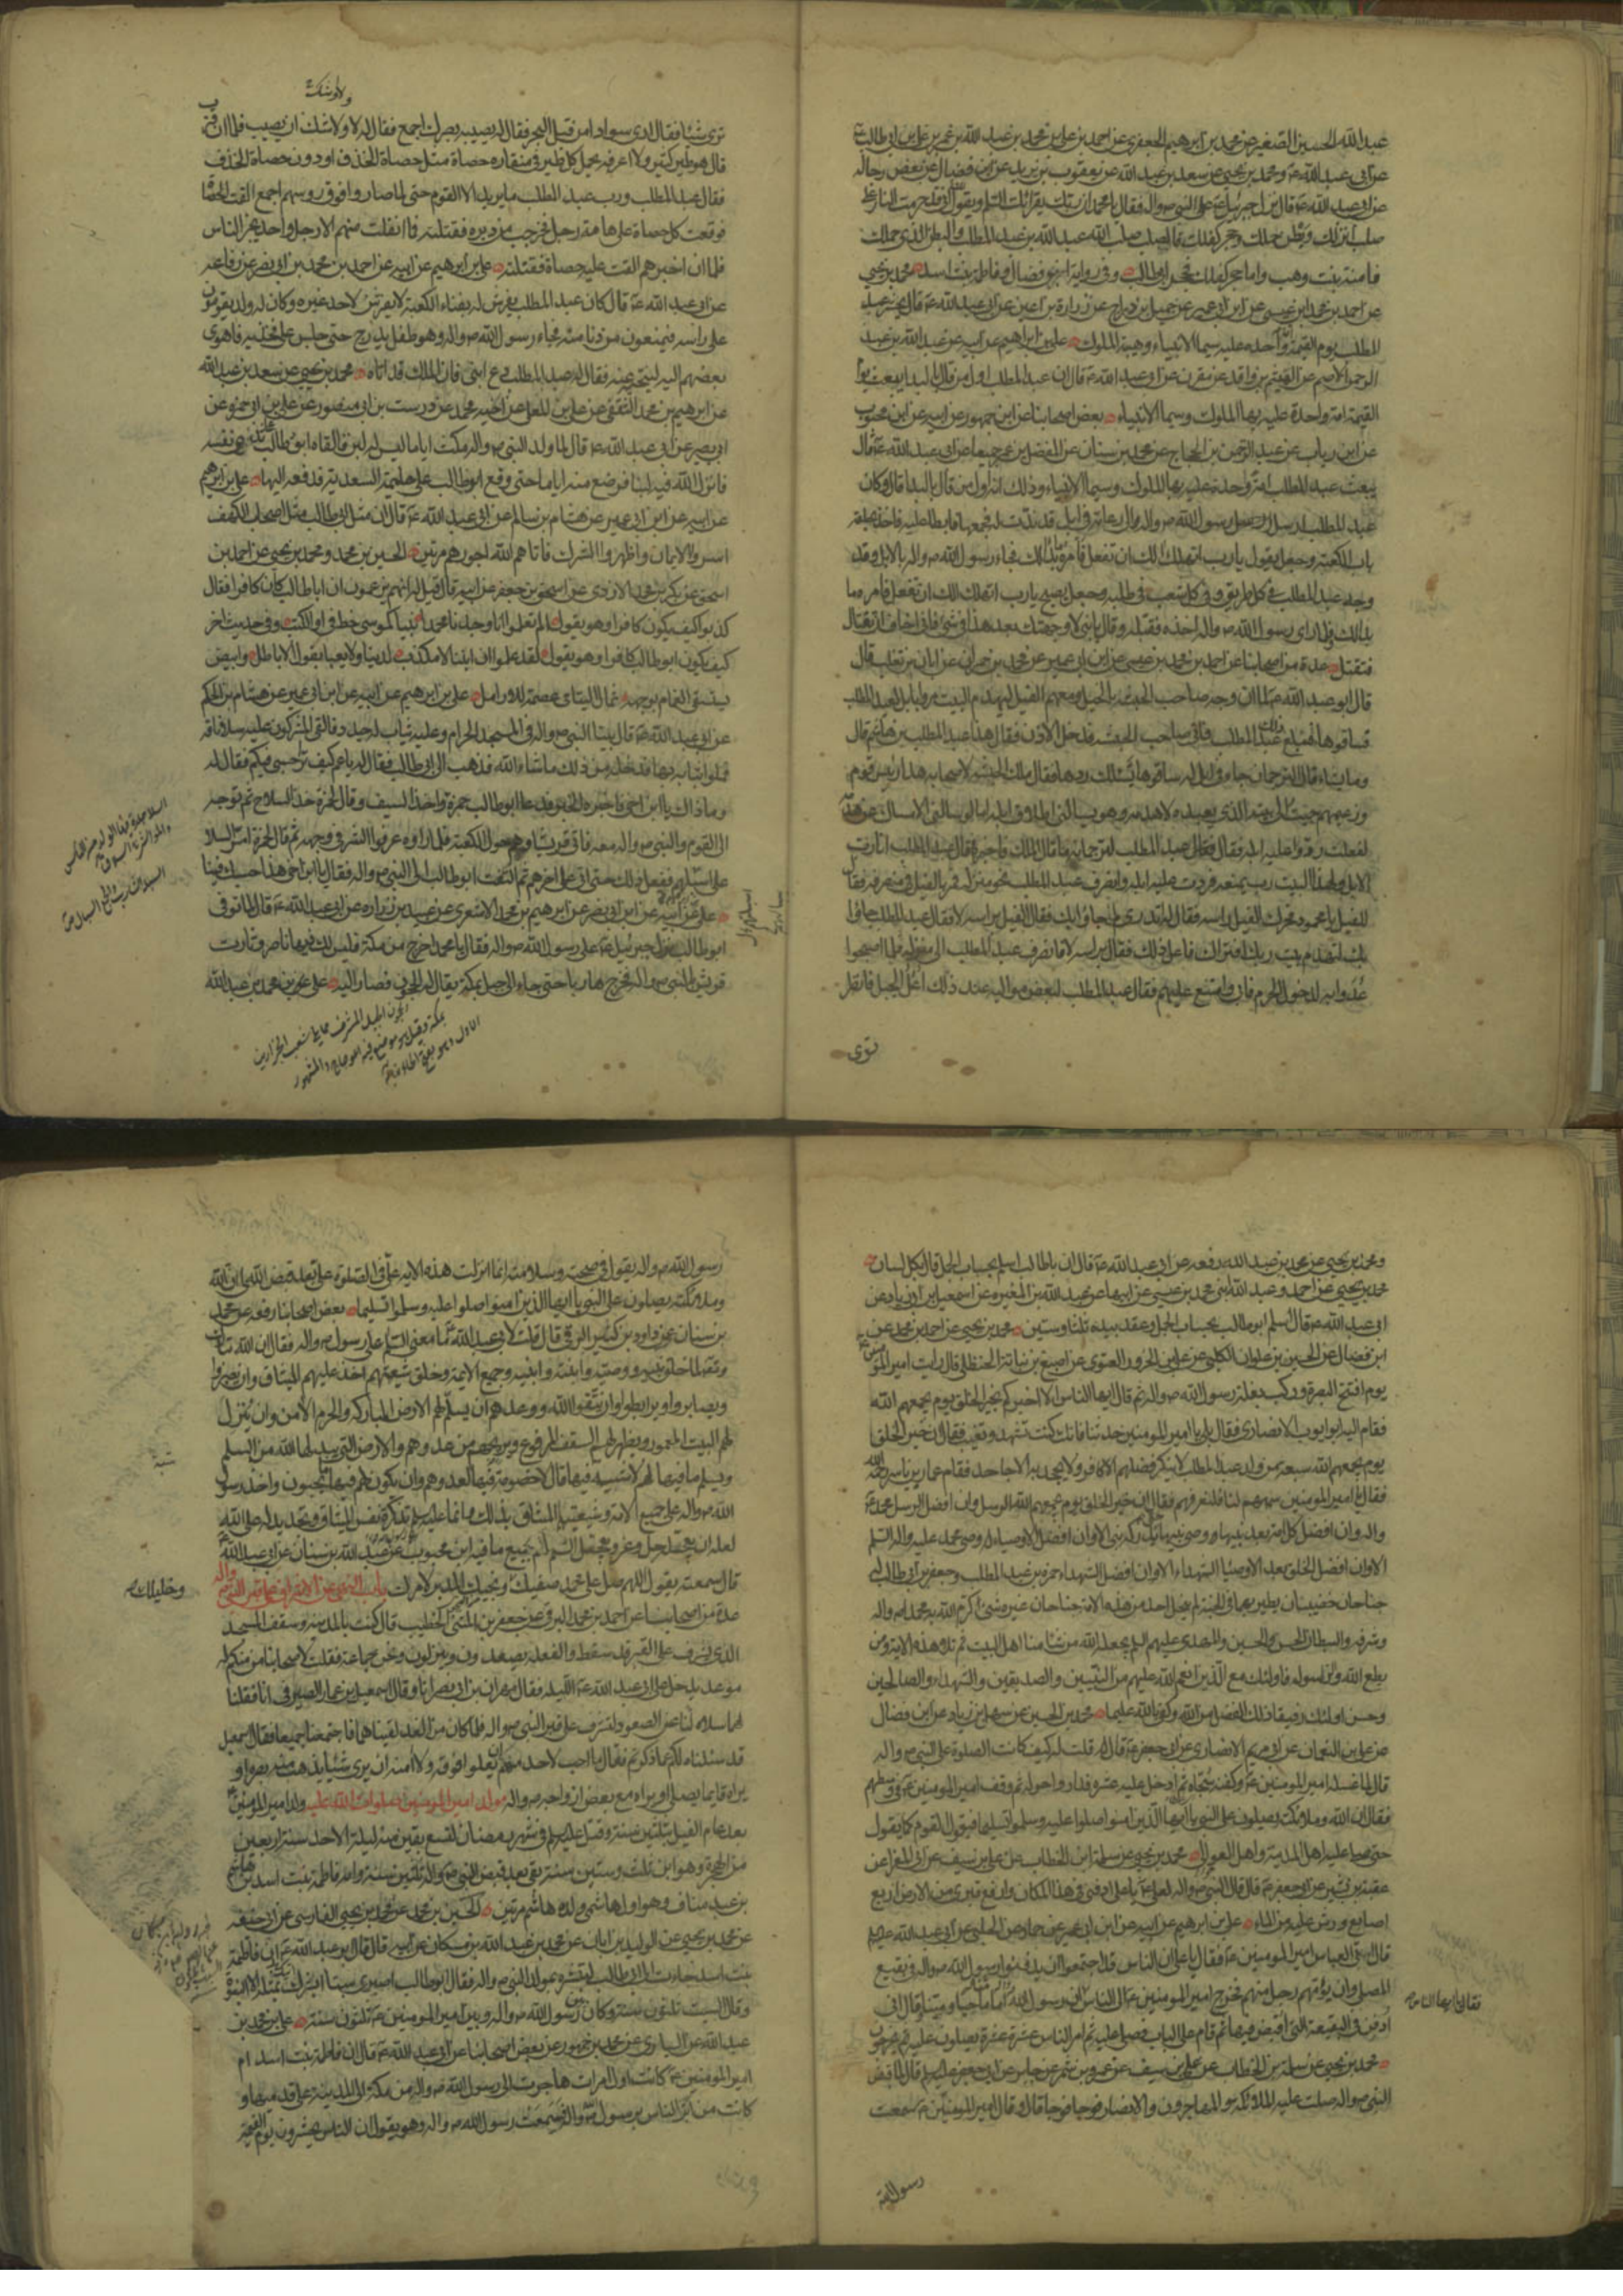 عبد الله الحسين الصغير عن محمد بن ابرهيم الجعفرى عن احمد بن على بن محمد بن عبد الله بن عمر بن على بن ابى طالب ع
عن ابى عبد الله ع ومحمد بن يحيى عن سعد بن عبد الله عن يعقوب بن يزيد عن ابن فضال عن بعض رجاله
عن ابى عبد الله ع قال نزل جبرئيل ع على النبى ص واله فقال يا محمد ان ربك يقرئك السلم ويقول انى قد حرمت النار على
صلب انزلك وبطن حملك وحجر كفلك فالصلب صلب ابيك عبد الله بن عبد المطلب والبطن الذى حملك
فامنة بنت وهب واما حجر كفلك فحجر ابى طالب وفى رواية ابن فضال وفاطمة بنت اسد محمد بن يحيى
عن احمد بن محمد بن عيسى عن ابن ابى عمير عن جميل بن دراج عن زرارة بن اعين عن ابى عبد الله ع قال يحشر عبد
المطلب يوم القيمة امة واحدة عليه سيما الانبياء وهيبة الملوك على بن ابراهيم عن ابيه عن عبد الله بن عبد
الرحمن الاصم عن الهيثم بن واقد عن مقرن عن ابى عبد الله ع قال ان عبد المطلب اول من قال بالبدا يبعث يوم
القيمة امة واحدة عليه بهاء الملوك وسيما الانبياء بعض اصحابنا عن ابن جمهور عن ابيه عن ابن محبوب
عن ابن رياب عن عبد الرحمن بن الحجاج عن محمد بن سنان عن المفضل بن عمر جميعا عن ابى عبد الله ع قال
يبعث عبد المطلب امة وحده عليه بهاء الملوك وسيما الانبياء وذلك انه اول من قال بالبدا قال وكان
عبد المطلب ارسل رسول الله ص واله الى رعاته فى ابل قد ندت له فجمعها فابطا عليه فاخذ بحلقة
باب الكعبة وجعل يقول يا رب اتهلك الك ان تفعل فامر ما بدا لك فجاء رسول الله ص واله بالابل وقد
وجه عبد المطلب فى كل طريق وفى كل شعب فى طلبه وجعل يصيح يا رب اتهلك الك ان تفعل فامر ما
بدا لك ولما راى رسول الله ص واله اخذه فقبله وقال يا بنى لا وجهتك بعد هذا فى شئ فانى اخاف ان تغتال
فتقتل عدة من اصحابنا عن احمد بن محمد بن عيسى عن ابن ابى عمير عن محمد بن حمران عن ابان بن تغلب قال
قال ابو عبد الله ع لما ان وجه صاحب الحبشة بالخيل ومعهم الفيل ليهدم البيت مروا بابل لعبد المطلب
فساقوها فبلغ ذلك عبد المطلب فاتى صاحب الحبشة فدخل الاذن فقال هذا عبد المطلب بن هاشم قال
وما يشاء قال الترجمان جاء فى ابل له ساقوها يسئلك ردها فقال ملك الحبشة لاصحابه هذا رئيس قوم
وزعيمهم جئت الى بيته الذى يعبده لاهدمه وهو يسالنى اطلاق ابله اما لو سالنى الامساك عن هدمه
لفعلت ردوا عليه ابله فقال عبد المطلب لترجمانه ما قال الملك فاخبره فقال عبد المطلب انا رب
الابل ولهذا البيت رب يمنعه فردت عليه ابله وانصرف عبد المطلب نحو منزله فمر بالفيل فى منصرفه فقال
للفيل يا محمود فحرك الفيل راسه فقال له تدرى لم جاؤا بك فقال الفيل براسه لا فقال عبد المطلب جاؤا
بك لتهدم بيت ربك افتراك فاعل ذلك فقال براسه لا فانصرف عبد المطلب الى منزله فلما اصبحوا
غدوا به لدخول الحرم فابى وامتنع عليهم فقال عبد المطلب لبعض مواليه عند ذلك اعل الجبل فانظر
ترى
ولا وشك
ترى شيئا فقال ارى سوادا من قبل البحر فقال له يصيبه بصرك اجمع فقال له لا ولاشك ان يصيب فلما ان قرب
قال هو طير كثير ولا اعرفه يحمل كل طير فى منقاره حصاة مثل حصاة الخذف او دون حصاة الخذف
فقال عبد المطلب ورب عبد المطلب ما يريد الا القوم حتى لما صاروا فوق رؤسهم اجمع القت الحصا
فوقعت كل حصاة على هامة رجل فخرجت من دبره فقتلته فما انفلت منهم الا رجل واحد يخبر الناس
فلما ان اخبرهم القت عليه حصاة فقتلته على بن ابرهيم عن ابيه عن احمد بن محمد بن ابى نصر عن رفاعة
عن ابى عبد الله ع قال كان عبد المطلب يفرش له بفناء الكعبة لا يفرش لاحد غيره وكان له ولد يقومون
على راسه فيمنعون من دنا منه فجاء رسول الله ص واله وهو طفل يدرج حتى جلس على فخذيه فاهوى
بعضهم اليه لينحيه عنه فقال له عبد المطلب دع ابنى فان الملك قد اتاه محمد بن يحيى عن سعد بن عبد الله
عن ابرهيم بن محمد الثقفى عن على بن المعلى عن اخيه محمد عن درست بن ابى منصور عن على بن ابى حمزة عن
ابى بصير عن ابى عبد الله ع قال لما ولد النبى ص واله مكث اياما ليس له لبن فالقاه ابو طالب على ثدى نفسه
فانزل الله فيه لبنا فرضع منه اياما حتى وقع ابو طالب على حليمة السعدية فدفعه اليها على بن ابرهيم
عن ابيه عن ابن ابى عمير عن هشام بن سالم عن ابى عبد الله ع قال ان مثل ابى طالب مثل اصحاب الكهف
اسروا الايمان واظهروا الشرك فاتاهم الله اجورهم مرتين الحسين بن محمد ومحمد بن يحيى عن احمد بن
اسحق عن بكر بن محمد الازدى عن اسحق بن جعفر عن ابيه قال قيل له انهم يزعمون ان ابا طالب كان كافرا فقال
كذبوا كيف يكون كافرا وهو يقول الم تعلموا انا وجدنا محمدا نبيا كموسى خط فى اول الكتب وفى حديث اخر
كيف يكون ابو طالب كافرا وهو يقول لقد علموا ان ابننا لا مكذب لدينا ولا يعبا بقول الاباطل وابيض
يستسقى الغمام بوجهه ثمال اليتامى عصمة للارامل على بن ابرهيم عن ابيه عن ابن ابى عمير عن هشام بن الحكم
عن ابى عبد الله ع قال بينا النبى ص واله فى المسجد الحرام وعليه ثياب له جدد فالقى المشركون عليه سلا ناقة
فملؤا ثيابه بها فدخله من ذلك ما شاء الله فذهب الى ابى طالب فقال له يا عم كيف ترى حسبى فيكم فقال له
وما ذاك يا ابن اخى فاخبره الخبر فدعا ابو طالب حمزة واخذ السيف وقال لحمزة خذ السلا ثم توجه
الى القوم والنبى ص واله معه فاتى قريشا وهم حول الكعبة فلما راوه عرفوا الشر فى وجهه ثم قال لحمزة امر السلا
على اسبلتهم ففعل ذلك حتى اتى على اخرهم ثم التفت ابو طالب الى النبى ص واله فقال يا ابن اخى هذا حسبك فينا
على عن ابيه عن ابن ابى نصر عن ابرهيم بن محمد الاشعرى عن عبيد بن زرارة عن ابى عبد الله ع قال لما توفى
ابو طالب نزل جبرئيل ع على رسول الله ص واله فقال يا محمد اخرج من مكة فليس لك فيها ناصر وثارت
قريش بالنبى ص واله فخرج هاربا حتى جاء الى جبل بمكة يقال له الحجون فصار اليه على بن محمد بن عبد الله
الحجون الجبل المشرف مما يلى شعب الجزارين
بمكة وقيل هو موضع فيه اعوجاج والمشهور
الاول وهو بفتح الحاء
ومحمد بن يحيى عن محمد بن عبد الله رفعه عن ابى عبد الله ع قال ان ابا طالب اسلم بحساب الجمل قال بكل لسان
محمد بن يحيى عن احمد وعبد الله ابنى محمد بن عيسى عن ابيهما عن عبد الله بن المغيره عن اسمعيل بن ابى زياد عن
ابى عبد الله ع قال اسلم ابو طالب بحساب الجمل وعقد بيده ثلثا وستين محمد بن يحيى عن احمد بن محمد عن
ابن فضال عن الحسين بن علوان الكلبى عن على بن الحزور الغنوى عن اصبغ بن نباتة الحنظلى قال رايت امير المؤمنين ع
يوم افتتح البصرة وركب بغلة رسول الله ص واله ثم قال ايها الناس الا اخبركم بخير الخلق يوم يجمعهم الله
فقام اليه ابو ايوب الانصارى فقال بلى يا امير المومنين حدثنا فانك كنت تشهد ونغيب فقال ان خير الخلق
يوم يجمعهم الله سبعة من ولد عبد المطلب لا ينكر فضلهم الا كافر ولا يجحد به الا جاحد فقام عمار بن ياسر رحمه الله
فقال يا امير المومنين سمهم لنا فلنعرفهم فقال ان خير الخلق يوم يجمعهم الله الرسل وان افضل الرسل محمد ص
واله وان افضل كل امة بعد نبيها وصى نبيها حتى يدركه نبى الا وان افضل الاوصياء وصى محمد عليه واله السلم
الا وان افضل الخلق بعد الاوصيا الشهداء الا وان افضل الشهداء حمزة بن عبد المطلب وجعفر بن ابى طالب له
جناحان خضيبان يطير بهما فى الجنة لم ينحل احد من هذه الامة جناحان غيره شئ اكرم الله به محمدا ص واله
وشرفه والسبطان الحسن والحسين والمهدى عليهم السلم يجعله الله من شاء منا اهل البيت ثم تلا هذه الاية ومن
يطع الله والرسول فاولئك مع الذين انعم الله عليهم من النبيين والصديقين والشهداء والصالحين
وحسن اولئك رفيقا ذلك الفضل من الله وكفى بالله عليما محمد بن الحسين عن سهل بن زياد عن ابن فضال
عن على بن النعمان عن ابى مريم الانصارى عن ابى جعفر ع قال قلت له كيف كانت الصلوة على النبى ص واله
قال لما غسله امير المومنين ع وكفنه سجاه ثم ادخل عليه عشرة فداروا حوله ثم وقف امير المومنين ع فى وسطهم
فقال ان الله وملائكته يصلون على النبى يا ايها الذين امنوا صلوا عليه وسلموا تسليما فيقول القوم كما يقول
حتى صلى عليه اهل المدينة واهل العوالى محمد بن يحيى عن سلمة ابن الخطاب عن على بن سيف عن ابى المغرا عن
عقبة بن بشير عن ابى جعفر ع قال قال النبى ص واله لعلى ع يا على ادفنى فى هذا المكان وارفع قبرى من الارض اربع
اصابع ورش عليه من الماء على بن ابرهيم عن ابيه عن ابن ابى عمير عن حماد عن الحلبى عن ابى عبد الله ع
قال اتى العباس امير المومنين ع فقال يا على ان الناس قد اجتمعوا ان يدفنوا رسول الله ص واله فى بقيع
المصلى وان يؤمهم رجل منهم فخرج امير المومنين ع الى الناس ان رسول الله امامنا حيا وميتا وقال انى
ادفن فى البقعة التى اقبض فيها ثم قام على الباب فصلى عليه ثم امر الناس عشرة عشرة يصلون عليه ثم يخرجون
فقال ايها الناس ص
محمد بن يحيى عن سلمة بن الخطاب عن على بن سيف عن عمرو بن شمر عن جابر عن ابى جعفر ع قال لما قبض
النبى ص واله صلت عليه الملائكة والمهاجرون والانصار فوجا فوجا قال وقال امير المومنين ع سمعت
رسول الله
رسول الله ص واله يقول فى صحته وسلامته انما انزلت هذه الاية على فى الصلوة على بعد قبض الله لى ان الله
وملائكته يصلون على النبى يا ايها الذين امنوا صلوا عليه وسلموا تسليما بعض اصحابنا رفعه عن محمد
بن سنان عن داود بن كثير الرقى قال قلت لابى عبد الله ع ما معنى السلم على رسول ص واله فقال ان الله تبارك
وتعالى لما خلق نبيه ووصيه وابنته وابنيه وجميع الائمة وخلق شيعتهم اخذ عليهم الميثاق وان يصبروا
ويصابروا ويرابطوا وان يتقوا الله ووعدهم ان يسلم لهم الارض المباركة والحرم الامن وان ينزل
لهم البيت المعمور ويظهر لهم السقف المرفوع ويريحهم من عدوهم والارض التى يبدلها الله من السلم
ويسلم ما فيها لهم لاشية فيها قال لا خصومة فيها لعدوهم وان يكون لهم فيها ما يحبون واخذ رسول
الله ص واله على جميع الائمة وشيعتهم الميثاق بذلك وانما عليه السلم تذكرة نفس الميثاق وتجديد له على الله
لعله ان يعجله جل وعز ويعجل السلم لهم بجميع ما فيه ابن محبوب عن عبد الله بن سنان عن ابى عبد الله ع
قال سمعته يقول اللهم صل على محمد صفيك ونجيك المدبر لامرك باب النهى عن الاشراف على قبر النبى ص واله
وخليلك ص
عدة من اصحابنا عن احمد بن محمد البرقى عن جعفر بن المثنى الخطيب قال كنت بالمدينة وسقف المسجد
الذى يشرف على القبر قد سقط والفعلة يصعدون وينزلون ونحن جماعة فقلت لاصحابنا من منكم له
موعد يدخل على ابى عبد الله ع الليلة فقال مهران بن ابى نصر انا وقال اسمعيل بن عمار الصيرفى انا فقلنا
لهما سلاه لنا عن الصعود لنشرف على قبر النبى ص واله فلما كان من الغد لقيناهما فاجتمعنا جميعا فقال اسمعيل
قد سئلناه لكم عما ذكرتم فقال ما احب لاحد منهم ان يعلو فوقه ولا امنه ان يرى شيئا يذهب منه بصره او
يراه قايما يصلى او يراه مع بعض ازواجه ص واله مولد امير المومنين صلوات الله عليه ولد امير المومنين ع
بعد عام الفيل بثلثين سنة وقتل ع فى شهر رمضان لتسع بقين منه ليلة الاحد سنة اربعين
من الهجرة وهو ابن ثلث وستين سنة بقى بعد قبض النبى ص واله ثلثين سنة وامه فاطمة بنت اسد بن هاشم
بن عبد مناف وهو اول هاشمى ولده هاشم مرتين الحسين بن محمد عن محمد بن يحيى الفارسى عن ابى حنيفة
عن محمد بن يحيى عن الوليد بن ابان عن محمد بن عبد الله بن مسكان عن ابيه قال قال ابو عبد الله ع ان فاطمة
بنت اسد جاءت الى ابى طالب لتبشره بمولد النبى ص واله فقال ابو طالب اصبرى سبتا ابشرك بمثله الا النبوة
وقال السبت ثلثون سنة وكان بين رسول الله ص واله وبين امير المومنين ع ثلثون سنة على بن محمد بن
عبد الله عن السيارى عن محمد بن جمهور عن بعض اصحابنا عن ابى عبد الله ع قال ان فاطمة بنت اسد ام
امير المومنين ع كانت اول امراة هاجرت الى رسول الله ص واله من مكة الى المدينة على قدميها و
كانت من ابر الناس برسول ص واله فسمعت رسول الله ص واله وهو يقول ان الناس يحشرون يوم القيمة